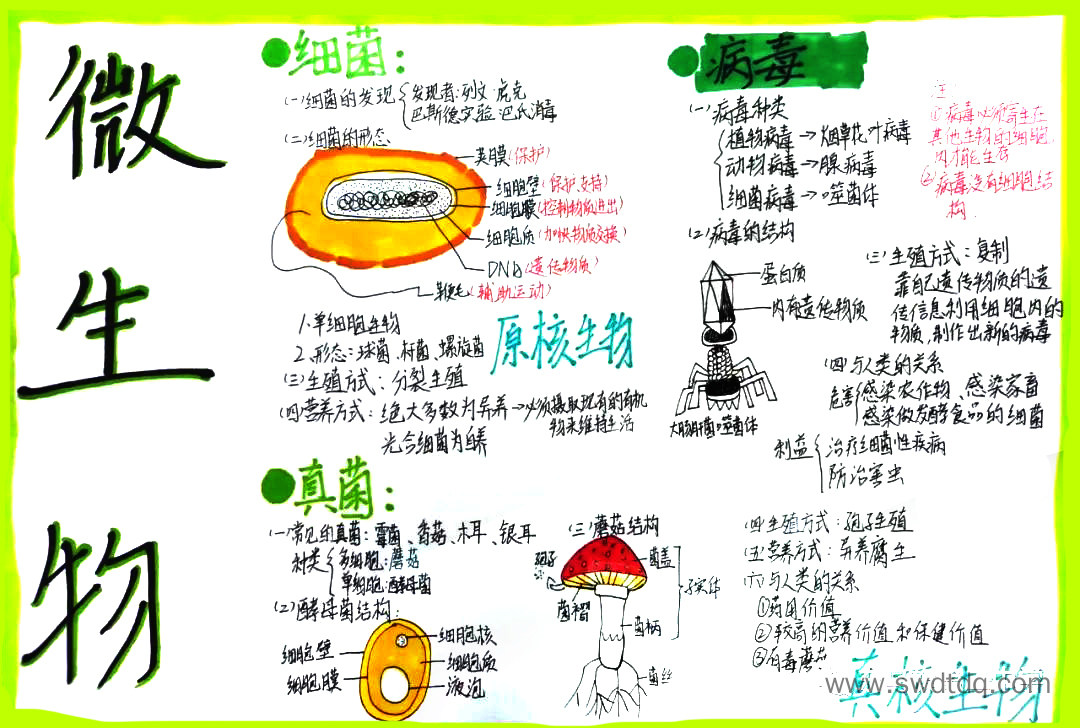 微生物
细菌：
(一)细菌的发现
发现者：列文·虎克
巴斯德实验 巴氏消毒
(二)细菌的形态
荚膜(保护)
细胞壁(保护、支持)
细胞膜(控制物质进出)
细胞质(加快物质交换)
DNA(遗传物质)
鞭毛(辅助运动)
1.单细胞生物
2.形态：球菌、杆菌、螺旋菌
原核生物
(三)生殖方式：分裂生殖
(四)营养方式：绝大多数为异养→必须摄取现有的有机
物来维持生活
光合细菌为自养
真菌：
(一)常见的真菌：霉菌、香菇、木耳、银耳
种类
多细胞：蘑菇
单细胞：酵母菌
(2)酵母菌结构：
细胞壁
细胞膜
细胞核
细胞质
液泡
(三)蘑菇结构
孢子
菌盖
菌褶
菌柄
子实体
菌丝
(四)生殖方式：孢子生殖
(五)营养方式：异养腐生
(六)与人类的关系
①药用价值
②较高的营养价值和保健价值
③有毒蘑菇
真核生物
病毒
(一)病毒种类
植物病毒→烟草花叶病毒
动物病毒→腺病毒
细菌病毒→噬菌体
注：
①病毒必须寄生在
其他生物的细胞
内才能生存
②病毒没有细胞结
构.
(2)病毒的结构
蛋白质
内有遗传物质
大肠杆菌噬菌体
(三)生殖方式：复制
靠自己遗传物质的遗
传信息利用细胞内的
物质,制作出新的病毒
(四)与人类的关系
危害
感染农作物、感染家畜
感染做发酵食品的细菌
利益
治疗细菌性疾病
防治害虫
www.swdtdq.com